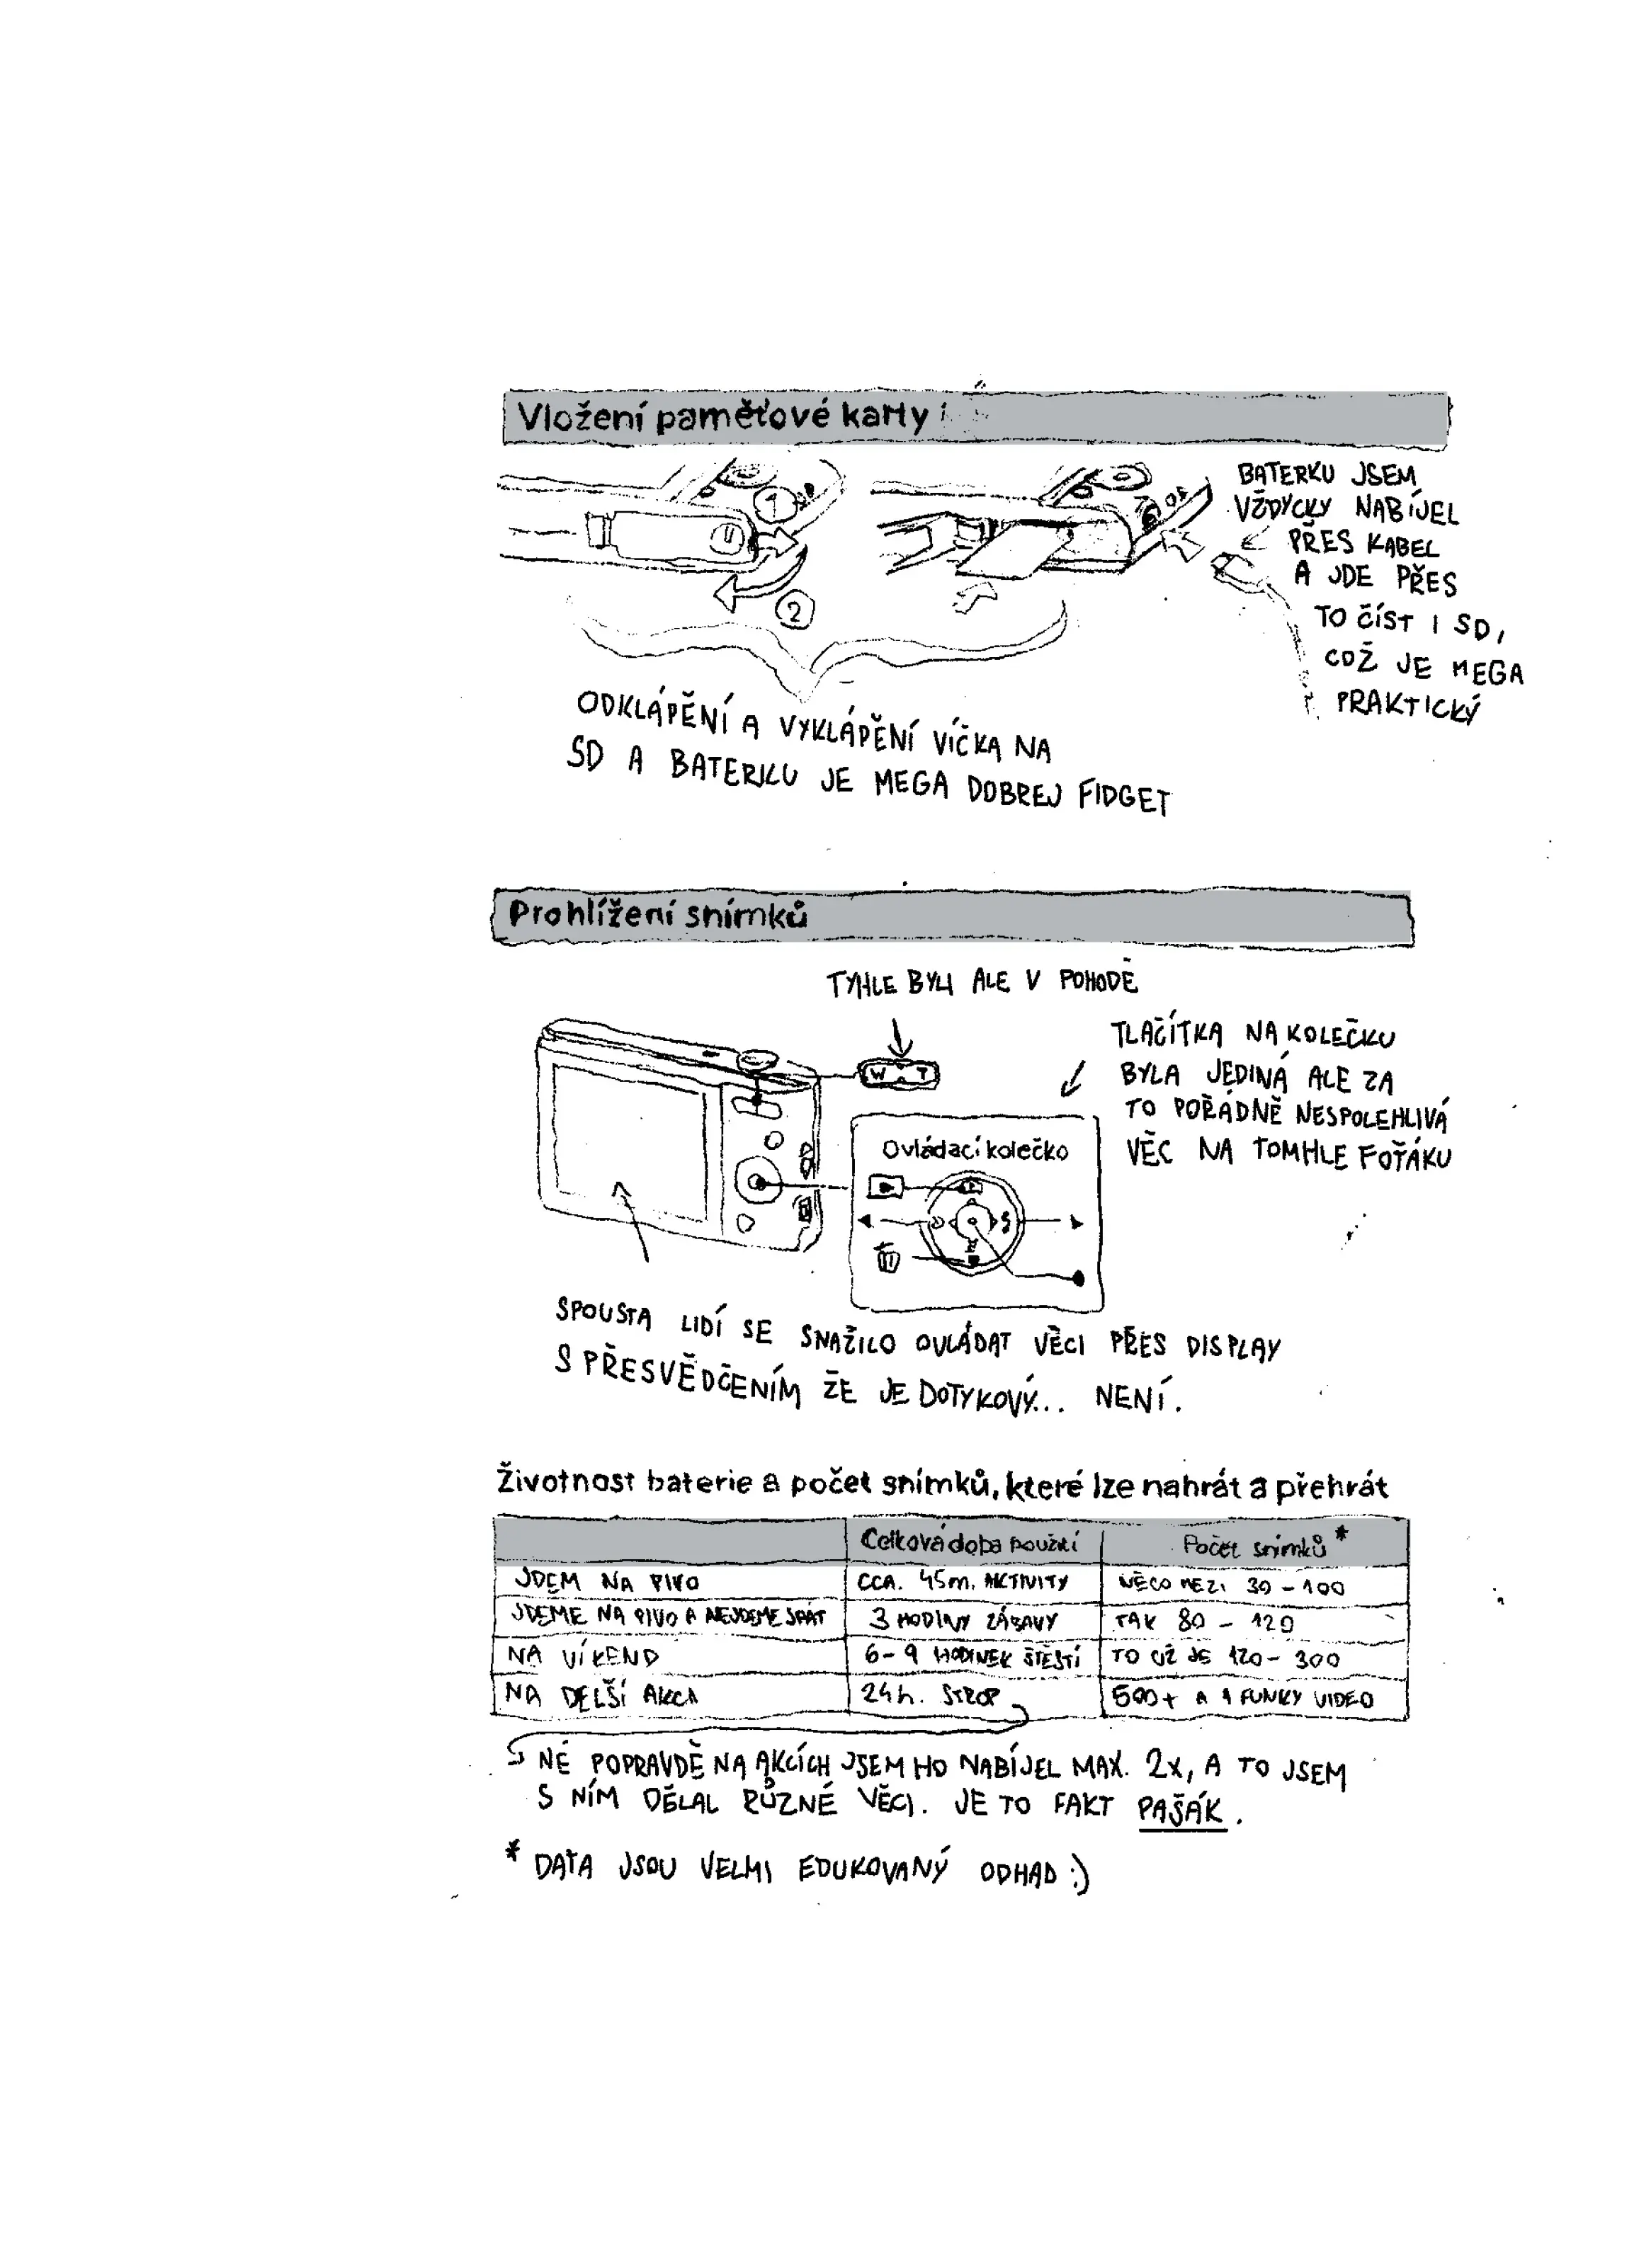 Vložení paměťové karty
BATERKU JSEM
VŽDYCKY NABÍJEL
PŘES KABEL
A JDE PŘES
TO ČÍST I SD,
COŽ JE MEGA
PRAKTICKÝ
1
2
ODKLÁPĚNÍ A VYKLÁPĚNÍ VÍČKA NA
SD A BATERKU JE MEGA DOBREJ FIDGET
Prohlížení snímků
TYHLE BYLY ALE V POHODĚ
W T
TLAČÍTKA NA KOLEČKU
BYLA JEDINÁ ALE ZA
TO POŘÁDNĚ NESPOLEHLIVÁ
VĚC NA TOMHLE FOŤÁKU
Ovládací kolečko
SPOUSTA LIDÍ SE SNAŽILO OVLÁDAT VĚCI PŘES DISPLAY
S PŘESVĚDČENÍM ŽE JE DOTYKOVÝ... NENÍ.
Životnost baterie a počet snímků, které lze nahrát a přehrát
Celková doba použití Počet snímků *
JDEM NA PIVO CCA. 45m. AKTIVITY NĚCO MEZI 30 - 100
JDEME NA PIVO A NEJDEME SPÁT 3 HODINY ZÁBAVY TAK 80 - 120
NA VÍKEND 6-9 HODINEK ŠTĚSTÍ TO UŽ JE 120- 300
NA DELŠÍ AKCI 24h. STROP 500+ A 1 FUNKY VIDEO
NE POPRAVDĚ NA AKCÍCH JSEM HO NABÍJEL MAX. 2x, A TO JSEM
S NÍM DĚLAL RŮZNÉ VĚCI. JE TO FAKT PAŠÁK.
* DATA JSOU VELMI EDUKOVANÝ ODHAD :)